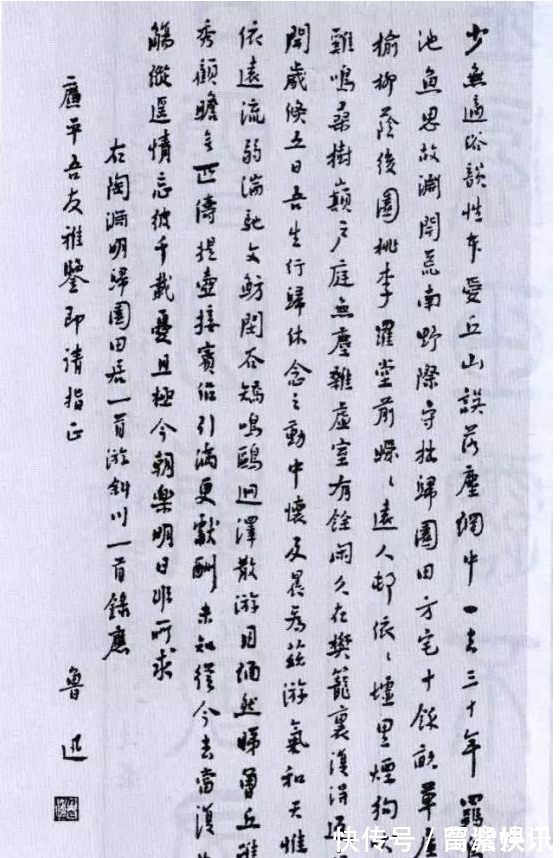 少無適俗韻性本愛丘山誤落塵網中一去三十年羈
池魚思故淵開荒南野際守拙歸園田方宅十餘畝草
榆柳蔭後園桃李羅堂前曖〻遠人邨依〻墟里煙狗
雞鳴桑樹巔戶庭無塵雜虛室有餘閑久在樊籠裏復得
開歲倏五日吾生行歸休念之動中懷及晨為茲游氣和天惟
依遠流弱湍馳文魴閑谷矯鳴鷗迥澤散游目緬然睇曾丘雖
秀顧瞻無匹儔提壺接賓侶引滿更獻酬未知從今去當復
觴縱遥情忘彼千載憂且極今朝樂明日非所求
右陶淵明歸園田居一首游斜川一首錄應
廣平吾友雅鑒即請指正
魯迅
快传号